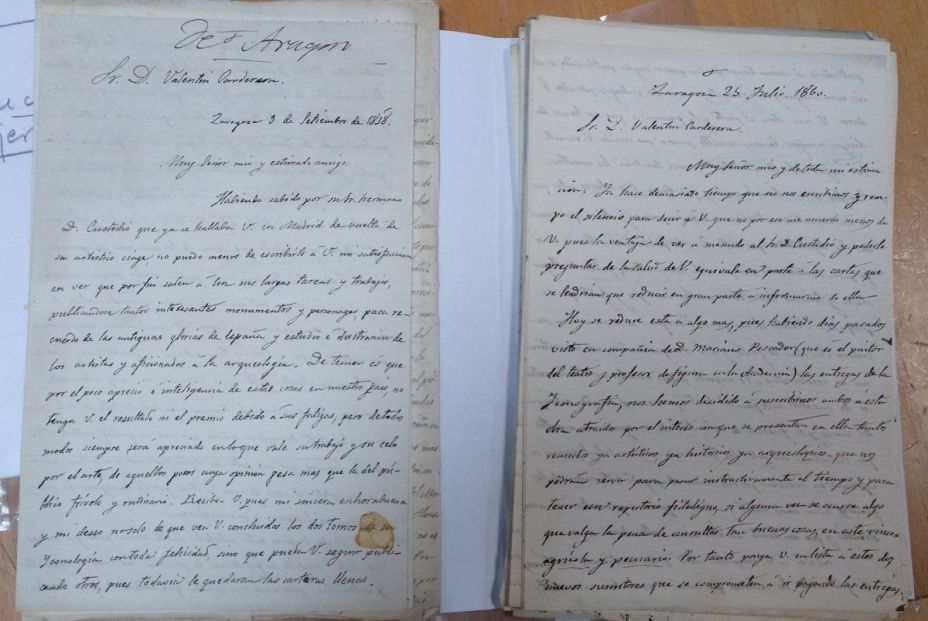 De Aragon
Sr. D. Valentin Carderera.
Zaragoza 3 de Setiembre de 1858.
Muy Señor mio y estimado amigo:
Habiendo sabido por su hermano
D. Custodio que ya se hallaba V. en Madrid de vuelta de
su artistico viage no puedo menos de escribirle á V. mi satisfaccion
en ver que por fin salen á luz sus largas tareas y trabajos,
publicandose tantos interesantes monumentos y personages, para re-
cuerdo de las antiguas glorias de España y estudio é ilustracion de
los artistas y aficionados á la arqueología. De temer és que
por el poco aprecio é inteligencia de estas cosas en nuestro pais, no
tenga V. el resultado ni el premio debido a sus fatigas, pero de todos
modos siempre será apreciado en lo que vale su trabajo y su celo
por el arte, de aquellos pocos cuya opinion pesa mas que la del pú-
blico frívolo y rutinario. Reciba V. pues mi sincera enhorabuena
y mi deseo no solo de que vea V. concluidos los dos tomos de su
Yconología con toda felicidad, sino que pueda V. seguir publi-
cando otros, pues todavia le quedaran las carteras llenas.
Zaragoza 25 Julio 1860.
Sr. D. Valentin Carderera.
Muy Señor mio y de toda mi estima
cion: Ya hace demasiado tiempo que no nos escribimos y rom-
po el silencio para decir á V. que no por eso me acuerdo menos de
V. pues la ventaja de ver a menudo al Sr. D. Custodio y poderle
preguntar de la salud de V. equivale en parte á las cartas que
se tendrian que reducir en gran parte á informarme de ella
Hoy se reduce esta á algo mas, pues habiendo dias pasados
visto en compañia de D. Mariano Pescador (que es el pintor
del teatro y profesor de figura en la Academia) las entregas de la
Yconografía, nos hemos decidido á suscribirnos ambos á esta
obra atraido por el interés con que se presentan en ella tantos
recuerdos ya artisticos ya históricos ya arqueologicos que nos
podran servir para pasar instructivamente el tiempo y para
tener un repertorio fidedigno, si alguna vez se ocurre algo
que valga la pena de consultar tan buenas cosas, en este
agrícola y pecuario. Por tanto ponga V. en lista á estos dos
nuevos suscritores que se comprometen á ir pagando las entregas